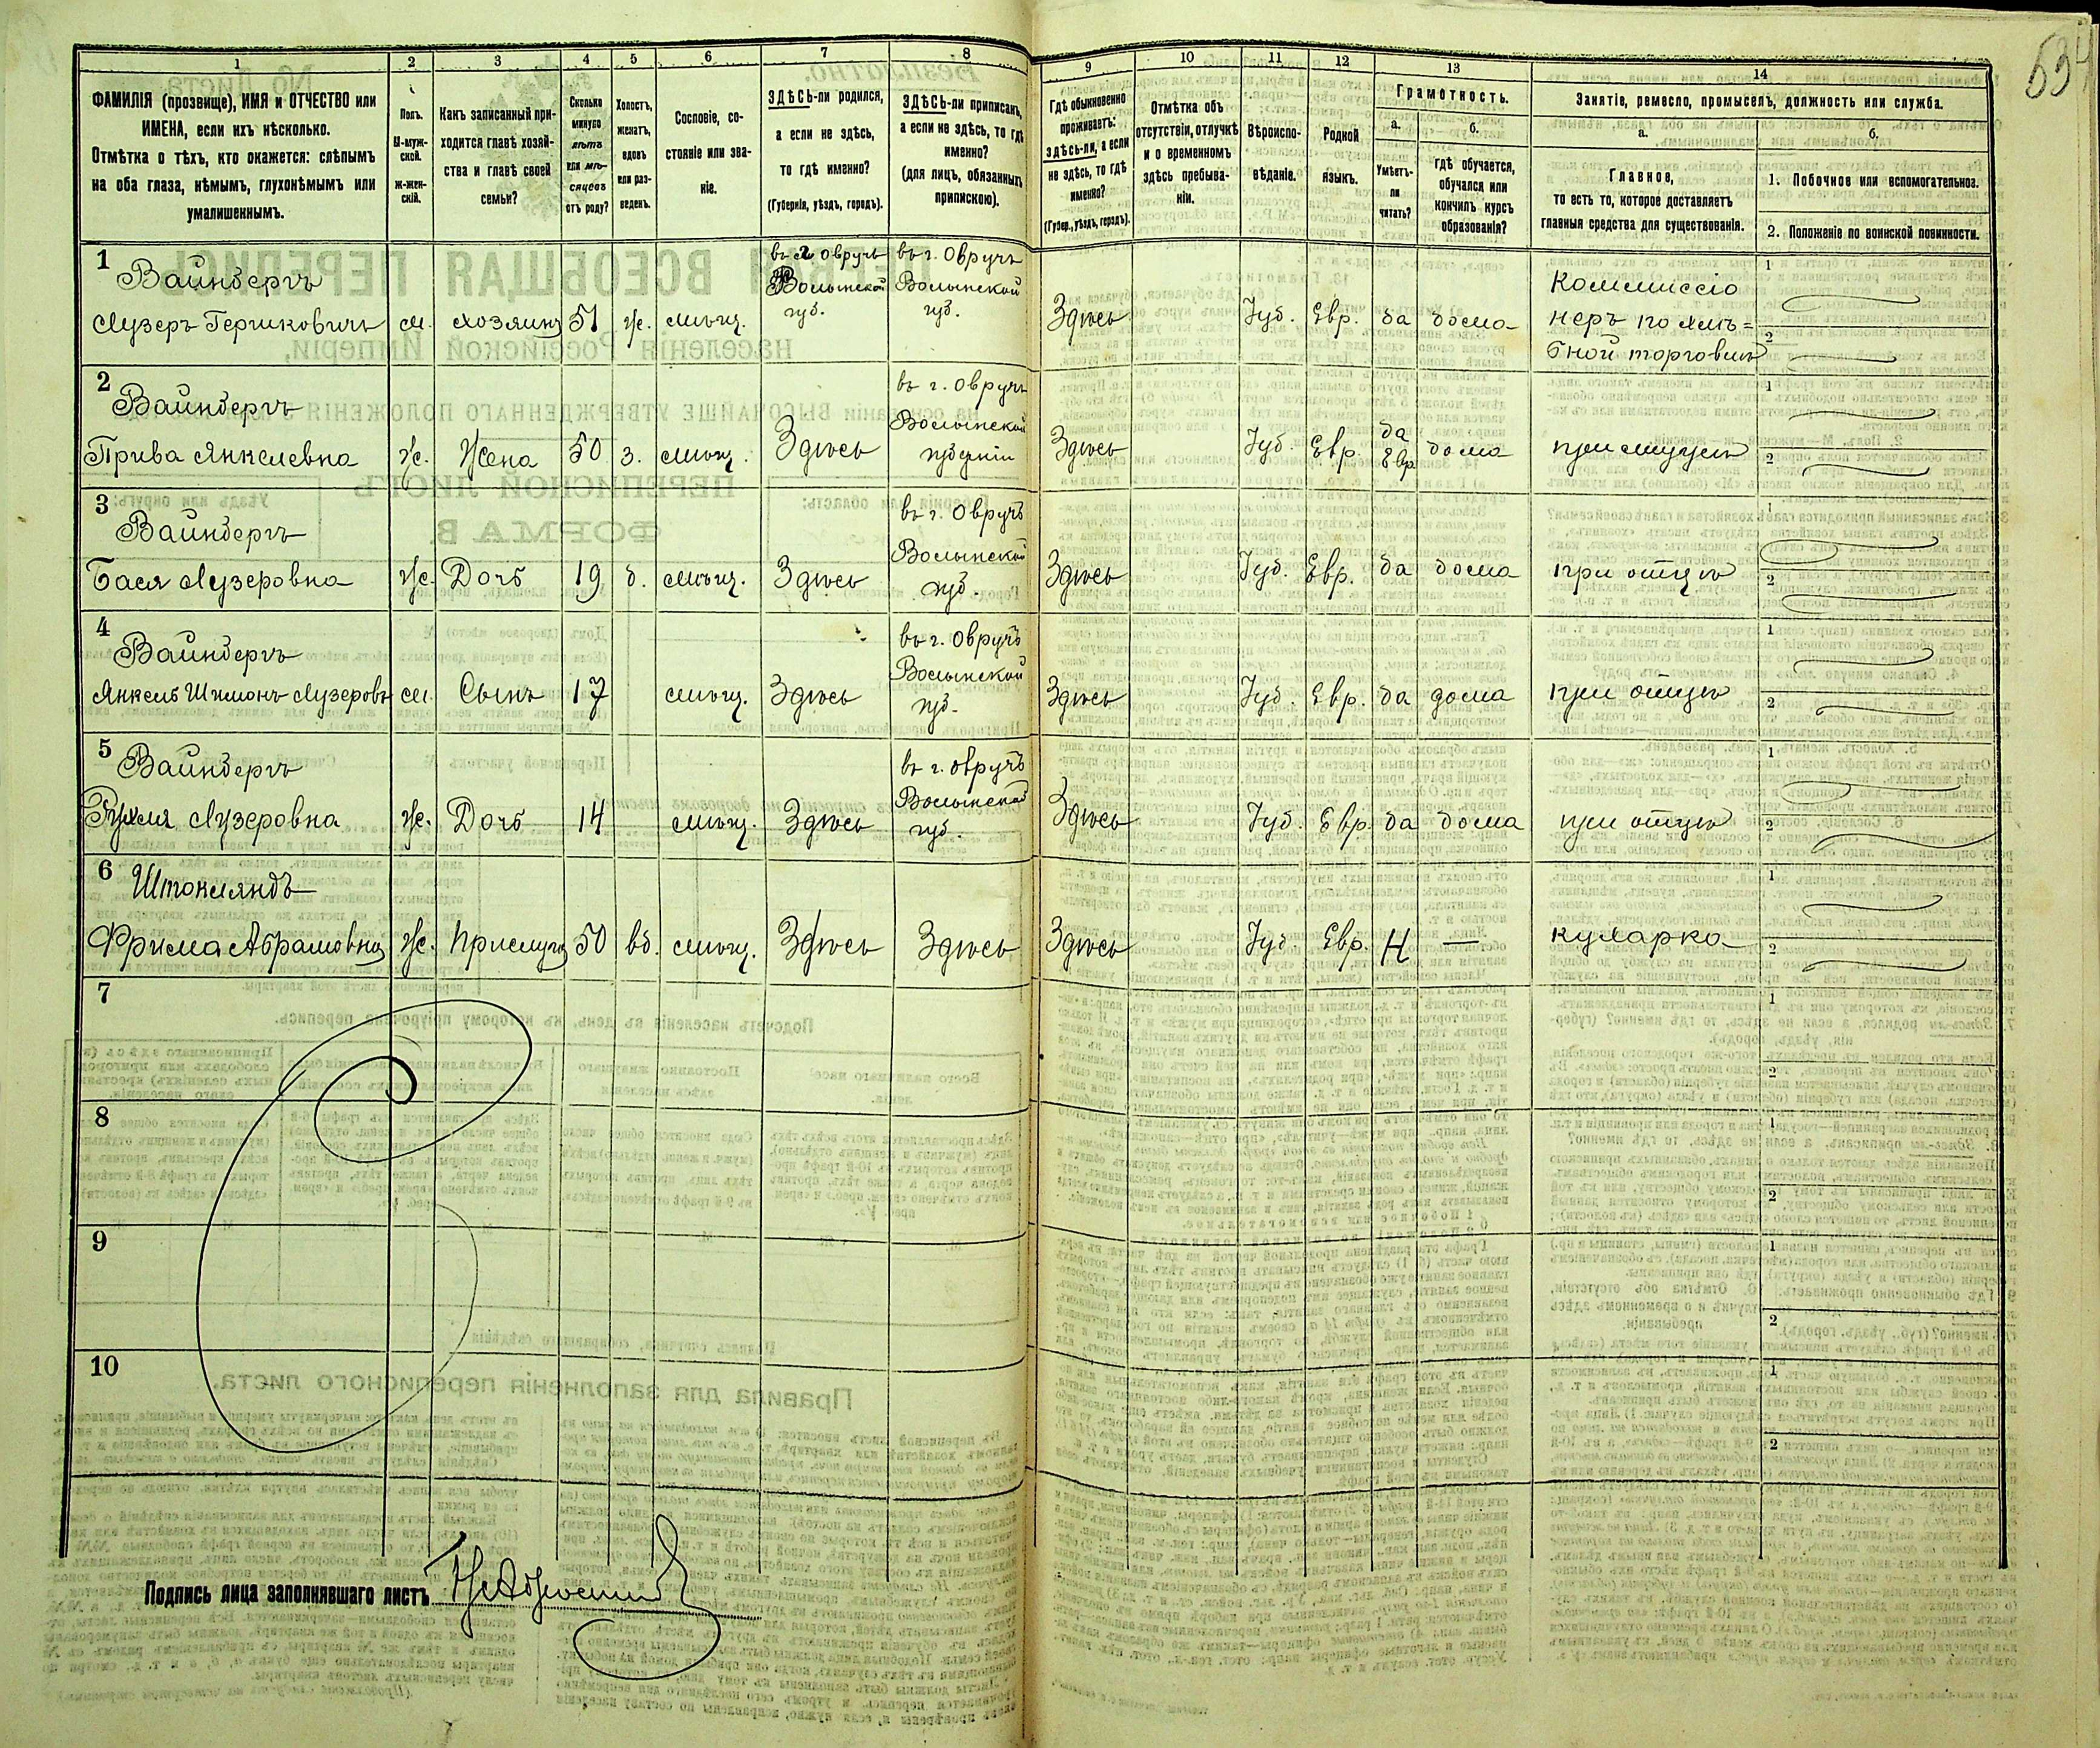 534
1
2
3
4
5
6
7
8
9
10
11
12
13
14
ФАМИЛІЯ (прозвище), ИМЯ и ОТЧЕСТВО или
ИМЕНА, если ихъ нѣсколько.
Отмѣтка о тѣхъ, кто окажется: слѣпымъ
на оба глаза, нѣмымъ, глухонѣмымъ или
умалишеннымъ.
Полъ.
М-муж-
ской.
ж-жен-
скій.
Какъ записанный при-
ходится главѣ хозяй-
ства и главѣ своей
семьи?
Сколько
минуло
лѣтъ
или мѣ-
сяцевъ
отъ роду?
Холостъ,
женатъ,
вдовъ
или раз-
веденъ.
Сословіе, со-
стояніе или зва-
ніе.
ЗДѢСЬ-ли родился,
а если не здѣсь,
то гдѣ именно?
(Губернія, уѣздъ, городъ).
ЗДѢСЬ-ли приписанъ,
а если не здѣсь, то гдѣ
именно?
(для лицъ, обязанныхъ
припискою).
Гдѣ обыкновенно
проживаетъ:
здѣсь-ли, а если
не здѣсь, то гдѣ
именно?
(Губер., уѣздъ, городъ).
Отмѣтка объ
отсутствіи, отлучкѣ
и о временномъ
здѣсь пребыва-
ніи.
Вѣроиспо-
вѣданіе.
Родной
языкъ.
Грамотность.
а.
Умѣетъ-
ли
читать?
б.
гдѣ обучается,
обучался или
кончилъ курсъ
образованія?
Занятіе, ремесло, промыселъ, должность или служба.
а.
Главное,
то есть то, которое доставляетъ
главныя средства для существованія.
б.
1. Побочное или вспомогательное.
2. Положеніе по воинской повинности.
1
Вайнбергъ
Лузеръ Гершковичъ м. хозяинъ 51 ж. мѣщ.
въ г. Овручъ
Волынской
губ.
въ г. Овручъ
Волынской
губ.
Здѣсь Іуд. Евр. да дома
Коммиссіо
неръ по хлѣ=
бной торговлѣ
1
2
2
Вайнбергъ
Прива Янкелевна ж. Жена 50 з. мѣщ. Здѣсь
въ г. Овручъ
Волынской
губерніи
Здѣсь Іуд. Евр.
да
Евр
дома
при мужѣ
1
2
3
Вайнбергъ
Бася Лузеровна ж. Дочь 19 д. мѣщ. Здѣсь
въ г. Овручъ
Волынской
губ.
Здѣсь Іуд. Евр. да дома при отцѣ
1
2
4
Вайнбергъ
Янкель Шимонъ Лузеровъ м. Сынъ 17 мѣщ. Здѣсь
въ г. Овручъ
Волынской
губ.
Здѣсь Іуд. Евр. да дома при отцѣ
1
2
5
Вайнбергъ
Рухля Лузеровна ж. Дочь 14 мѣщ. Здѣсь
въ г. Овручъ
Волынской
губ.
Здѣсь Іуд. Евр. да дома при отцѣ
1
2
6
Штокляндъ
Фрима Абрамовна ж. Прислуга 50 вд. мѣщ. Здѣсь Здѣсь
Здѣсь Іуд. Евр. Н — кухарка
1
2
7
1
2
8
1
2
9
1
2
10
1
2
Подпись лица заполнявшаго листъ